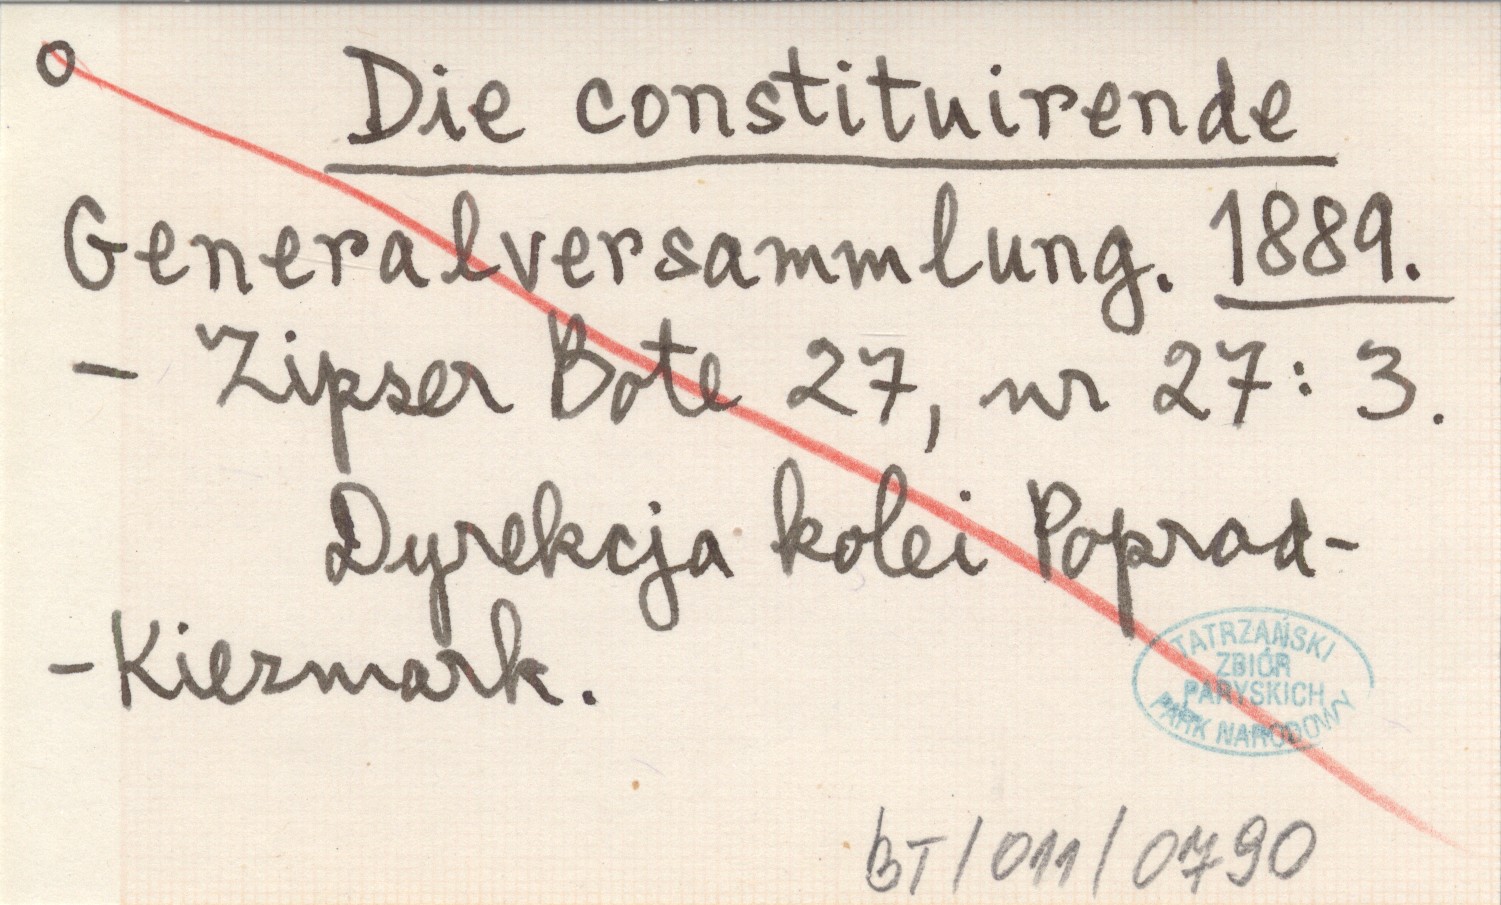 o Die constituirende
Generalversammlung. 1889.
- Zipser Bote 27, nr 27: 3.
Dyrekcja kolei Poprad-
-Kiezmark.
TATRZAŃSKI
ZBIÓR
PARYSKICH
PARK NARODOWY
BT/011/0790